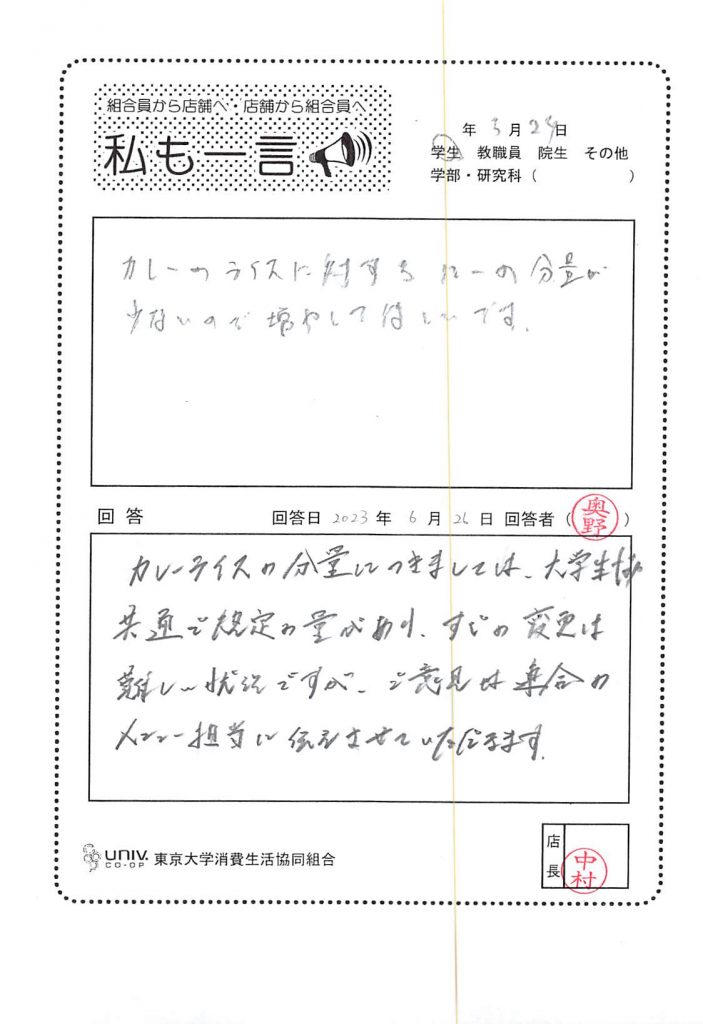 組合員から店舗へ・店舗から組合員へ
私も一言
年 5月 24日
学生 教職員 院生 その他
学部・研究科( )
カレーのライスに対するルーの分量が
少ないので増やしてほしいです。
回答 回答日 2023年 6月 26日 回答者(奥野)
カレーライスの分量につきましては、大学生協
共通で規定の量があり、すぐの変更は
難しい状況ですが、ご意見は連合の
メニュー担当に伝えさせていただきます。
UNIV. CO-OP 東京大学消費生活協同組合
店長 中村